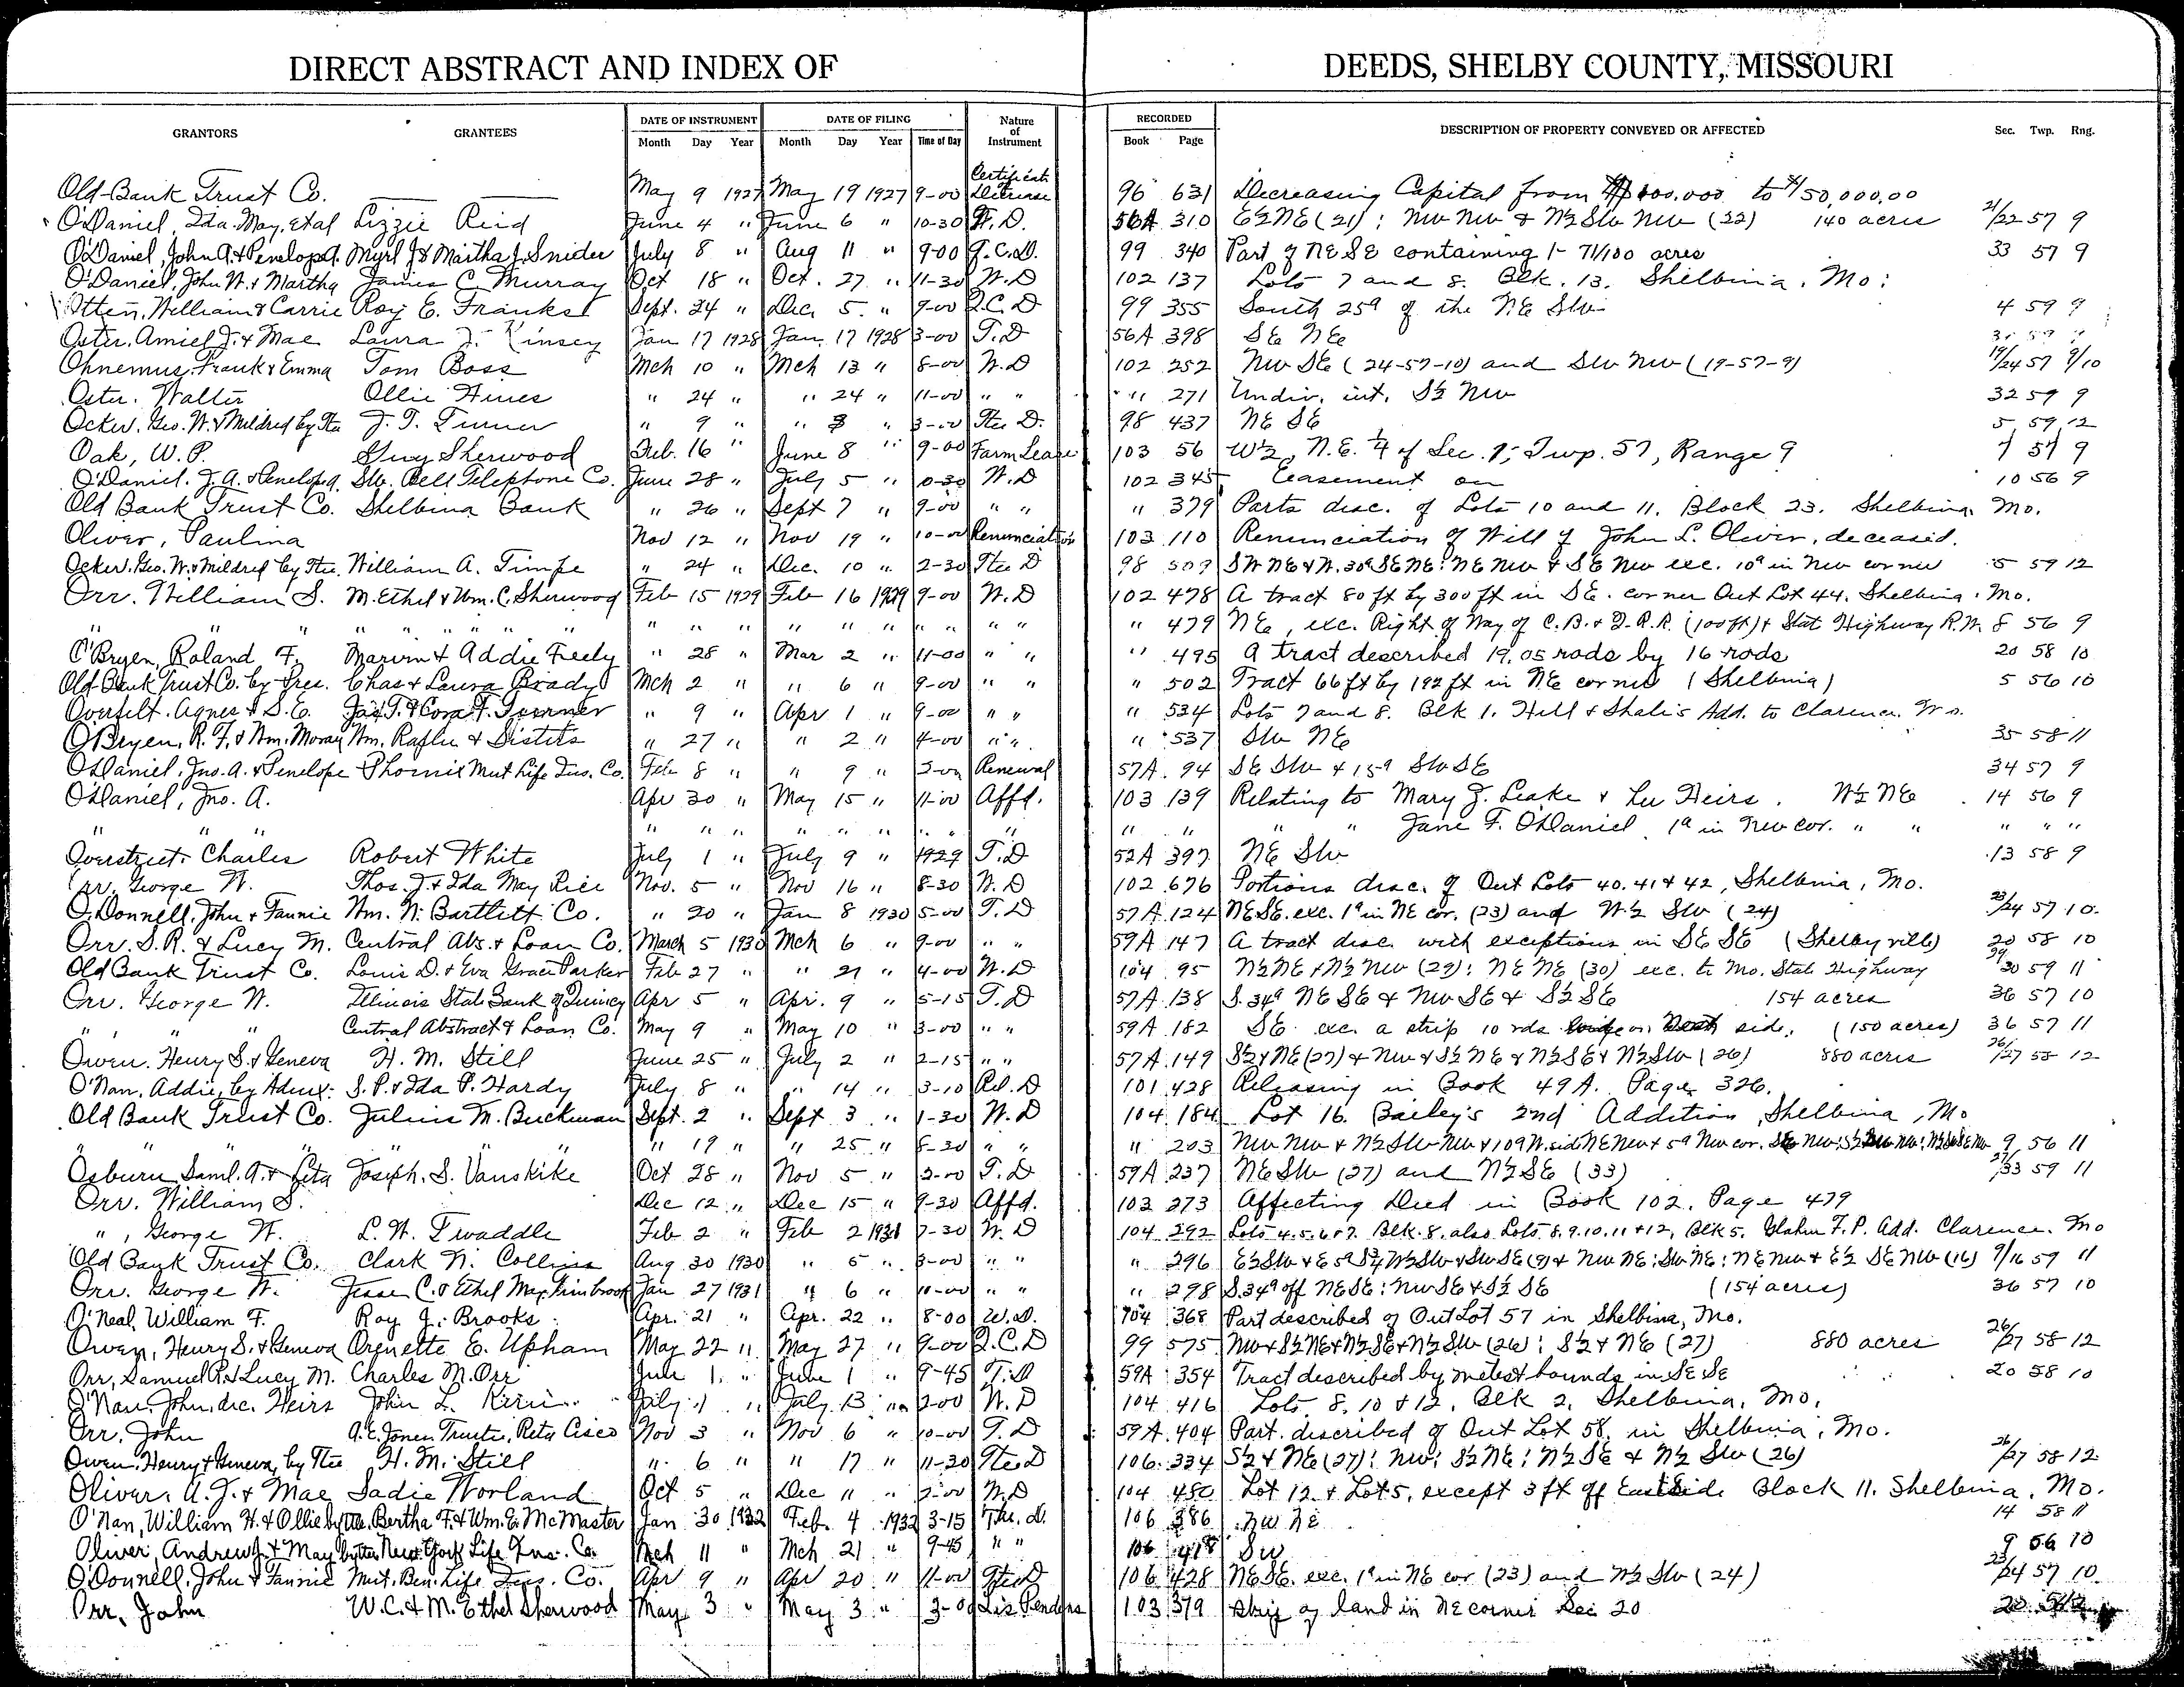 DIRECT ABSTRACT AND INDEX OF DEEDS, SHELBY COUNTY, MISSOURI
GRANTORS GRANTEES DATE OF INSTRUMENT Month Day Year DATE OF FILING Month Day Year Time of Day Nature of Instrument RECORDED Book Page DESCRIPTION OF PROPERTY CONVEYED OR AFFECTED Sec. Twp. Rng.
Old Bank Trust Co. May 9 1927 May 19 1927 9-00 Certificate Decrease 96 631 Decreasing Capital from $100,000 to $50,000,00
O'Daniel, Ida May, etal Lizzie Reid June 4 " June 6 " 10-30 W.D. 56A 310 E½NE (21); NW NW & N½ SW NW (22) 140 acres 21/22 57 9
O'Daniel, John A. & Penelope A. Myrl J & Martha J. Snider July 8 " Aug 11 " 9-00 Q.C.D. 99 340 Part of NE SE containing 1- 71/100 acres 33 57 9
O'Daniel, John W. & Martha James C. Murray Oct 18 " Oct. 27 " 11-30 W.D 102 137 Lots 7 and 8. Blk. 13. Shelbina, Mo.
Otten, William & Carrie Roy E. Franks Sept. 24 " Dec. 5 " 9-00 Q.C.D 99 355 South 25ª of the NE SW 4 59 9
Oster, Amiel J. & Mae Laura J. Kinsey Jan 17 1928 Jan. 17 1928 3-00 T.D 56A 398 SE NE
Ohnemus, Frank & Emma Tom Boss Mch 10 " Mch 13 " 8-00 W.D 102 252 NW SE (24-57-10) and SW NW (19-57-9) 19/24 57 9/10
Oster, Walter Ollie Hines " 24 " " 24 " 11-00 " " " 271 Undiv. int. S½ NW 32 59 9
Ocker, Geo. W. & Mildred by Ttee J. T. Turner " 9 " " " 3-00 Ttee D. 98 437 NE SE 5 59 12
Oak, W. P. Guy Sherwood Feb. 16 " June 8 " 9-00 Farm Lease 103 56 W½, N.E. ¼ of Sec. 7, Twp. 57, Range 9 7 57 9
O'Daniel, J. A. & Penelope A. SW. Bell Telephone Co. June 28 " July 5 " 10-30 W.D 102 345 Easement on 10 56 9
Old Bank Trust Co. Shelbina Bank " 26 " Sept 7 " 9-00 " " " 379 Parts desc. of Lots 10 and 11. Block 23. Shelbina Mo.
Oliver, Paulina Nov 12 " Nov 19 " 10-00 Renunciation 103 110 Renunciation of Will of John L. Oliver, deceased.
Ocker, Geo. W. & Mildred by Ttee. William A. Timpe " 24 " Dec. 10 " 2-30 Ttee D 98 509 SW NE & N. 30ª SE NE; NE NW & SE NW exc. 10ª in NW corner 5 59 12
Orr, William S. M. Ethel & Wm. C. Sherwood Feb 15 1929 Feb 16 1929 9-00 W.D 102 478 A tract 80 ft by 300 ft in SE. corner Out Lot 44. Shelbina, Mo.
" " " " " " " " " " " " " " " " " " 479 NE, exc. Right of Way of C. B. & Q. R.R. (100 ft) & State Highway R.W. 8 56 9
O'Bryen, Roland F. Marvin & Addie Feely " 28 " Mar 2 " 11-00 " " " 495 A tract described 19.05 rods by 16 rods 20 58 10
Old Bank Trust Co. by Pres. Chas & Laura Brady Mch 2 " " 6 " 9-00 " " " 502 Tract 66 ft by 192 ft in NE corner (Shelbina) 5 56 10
Overfelt, Agnes & S. E. Jas T. & Cora F. Turner " 9 " Apr 1 " 9-00 " " " 534 Lots 7 and 8. Blk 1. Hill & Add. to Clarence, Mo.
O'Bryen, R. F. & Wm. Moray Wm. Raflu & Sisters " 27 " " 2 " 4-00 " " " 537 SW NE 35 58 11
O'Daniel, Jno. A. & Penelope Phoenix Mut Life Ins. Co. Feb 8 " " 9 " Renewal 57A 94 SE SW & 15ª SW SE 34 57 9
O'Daniel, Jno. A. Apr 30 " May 15 " 11-00 Affd. 103 139 Relating to Mary J. Leake & Heirs. W½ NE 14 56 9
" " " " " " " " " " " " " " " " Jane F. O'Daniel 1ª in NW cor. " " " " "
Overstreet, Charles Robert White July 1 " July 9 " 1929 T.D 52A 397 NE SW 13 58 9
Orr, George W. Thos. J. & Ida May Rice Nov. 5 " Nov 16 " 8-30 W.D 102 676 Portions desc. of Out Lots 40. 41 & 42, Shelbina, Mo.
O'Donnell, John & Fannie Wm. N. Bartlett Co. " 20 " Jan 8 1930 5-00 T.D 57A 124 NE SE. exc. 1ª in NE cor. (23) and W½ SW (24) 23/24 57 10
Orr. S. R. & Lucy M. Central Abs. & Loan Co. March 5 1930 Mch 6 " 9-00 " " 59A 147 A tract desc. with exceptions in SE SE (Shelbyville) 20 58 10
Old Bank Trust Co. Louis D. & Eva Grace Parker Feb 27 " " 21 " 4-00 W.D 104 95 N½ NE & N½ NW (29); NE NE (30) exc. to Mo. State Highway 29/30 59 11
Orr. George W. Illinois State Bank of Quincy Apr 5 " Apr. 9 " 5-15 T.D 57A 138 S. 34ª NE SE & NW SE & S½ SE 154 acres 36 57 10
" " " Central Abstract & Loan Co. May 9 " May 10 " 3-00 " " 59A 182 SE exc. a strip 10 rds side. (150 acres) 36 57 11
Owen, Henry S. & Geneva H. M. Still June 25 " July 2 " 2-15 " " 57A 149 S½ & NE (27) & NW & S½ NE & N½ SE & N½ SW (26) 880 acres 26/27 58 12
O'Nan, Addie, by Admx. S. P. & Ida P. Hardy July 8 " " 14 " 3-10 Rel. D 101 428 Releasing in Book 49A. Page 326.
Old Bank Trust Co. Julius M. Buckman Sept. 2 " Sept 3 " 1-30 W.D 104 184 Lot 16. Bailey's 2nd Addition, Shelbina, Mo
" " " " " " " 19 " " 25 " 8-30 " " " 203 NW NW & N½ SW NW & 10ª W. side NE NW & 5ª NW cor. 9 56 11
Osburn Saml. A. & Leta Joseph. S. Vanskike Oct 28 " Nov 5 " 2-00 T.D 59A 237 NE SW (27) and N½ SE (33) 27/33 59 11
Orr. William S. Dec 12 " Dec 15 " 9-30 Affd. 103 273 Affecting Deed in Book 102, Page 479
", George W. L. W. Twaddle Feb 2 " Feb 2 1931 7-30 W.D 104 292 Lots 4. 5. 6 & 7. Blk. 8. also Lots 8. 9. 10. 11 & 12, Blk 5. Glahn F. P. Add. Clarence. Mo
Old Bank Trust Co. Clark N. Collins Aug 30 1930 " 5 " 3-00 " " " 296 E½ SW & E 5ª S¾ W½ SW & SW SE (9) & NW NE; SW NE; NE NW & E½ SE NW (16) 9/16 59 11
Orr. George W. Jesse C. & Ethel May Fimbrook Jan 27 1931 " 6 " 10-00 " " " 298 S. 34ª off NE SE; NW SE & S½ SE (154 acres) 36 57 10
O'Neal, William F. Roy J. Brooks Apr. 21 " Apr. 22 " 8-00 W.D. 104 368 Part described of Out Lot 57 in Shelbina, Mo.
Owen, Henry S. & Geneva Orenette E. Upham May 22 " May 27 " 9-00 Q.C.D 99 575 NW & S½ NE & N½ SE & N½ SW (26); S½ & NE (27) 880 acres 26/27 58 12
Orr, Samuel R. & Lucy M. Charles M. Orr June 1 " June 1 " 9-45 T.D 59A 354 Tract described by metes & bounds in SE SE 20 58 10
O'Nan, John, dec. Heirs John L. July 1 " July 13 " 2-00 W.D 104 416 Lots 8, 10 & 12, Blk 2, Shelbina, Mo.
Orr, John A. E. Jones Trustee, Reta Cisco Nov 3 " Nov 6 " 10-00 T.D 59A 404 Part described of Out Lot 58. in Shelbina, Mo.
Owen, Henry & Geneva, by Ttee H. M. Still " 6 " " 17 " 11-30 Ttee D 106 334 S½ & NE (27); NW; S½ NE; N½ SE & N½ SW (26) 26/27 58 12
Oliver, A. J. & Mae Sadie Worland Oct 5 " Dec 11 " 2-00 W.D 104 480 Lot 12 & Lot 5, except 3 ft off East Side Block 11. Shelbina, Mo.
O'Nan, William H. & Ollie by ttee. Bertha F. & Wm. E. McMaster Jan 30 1932 Feb. 4 1932 3-15 Ttee. D. 106 386 NW NE 14 58 11
Oliver, Andrew J. & May by ttee New York Life Ins. Co. Mch 11 " Mch 21 " 9-45 " " 106 418 SW 9 56 10
O'Donnell, John & Fannie Mut. Ben. Life Ins. Co. Apr 9 " Apr 20 " 11-00 Ttee D 106 428 NE SE. exc. 1ª in NE cor (23) and W½ SW (24) 23/24 57 10
Orr, John W. C. & M. Ethel Sherwood May 3 " May 3 " 3-00 Lis Pendens 103 379 Strip of land in NE corner Sec 20 20